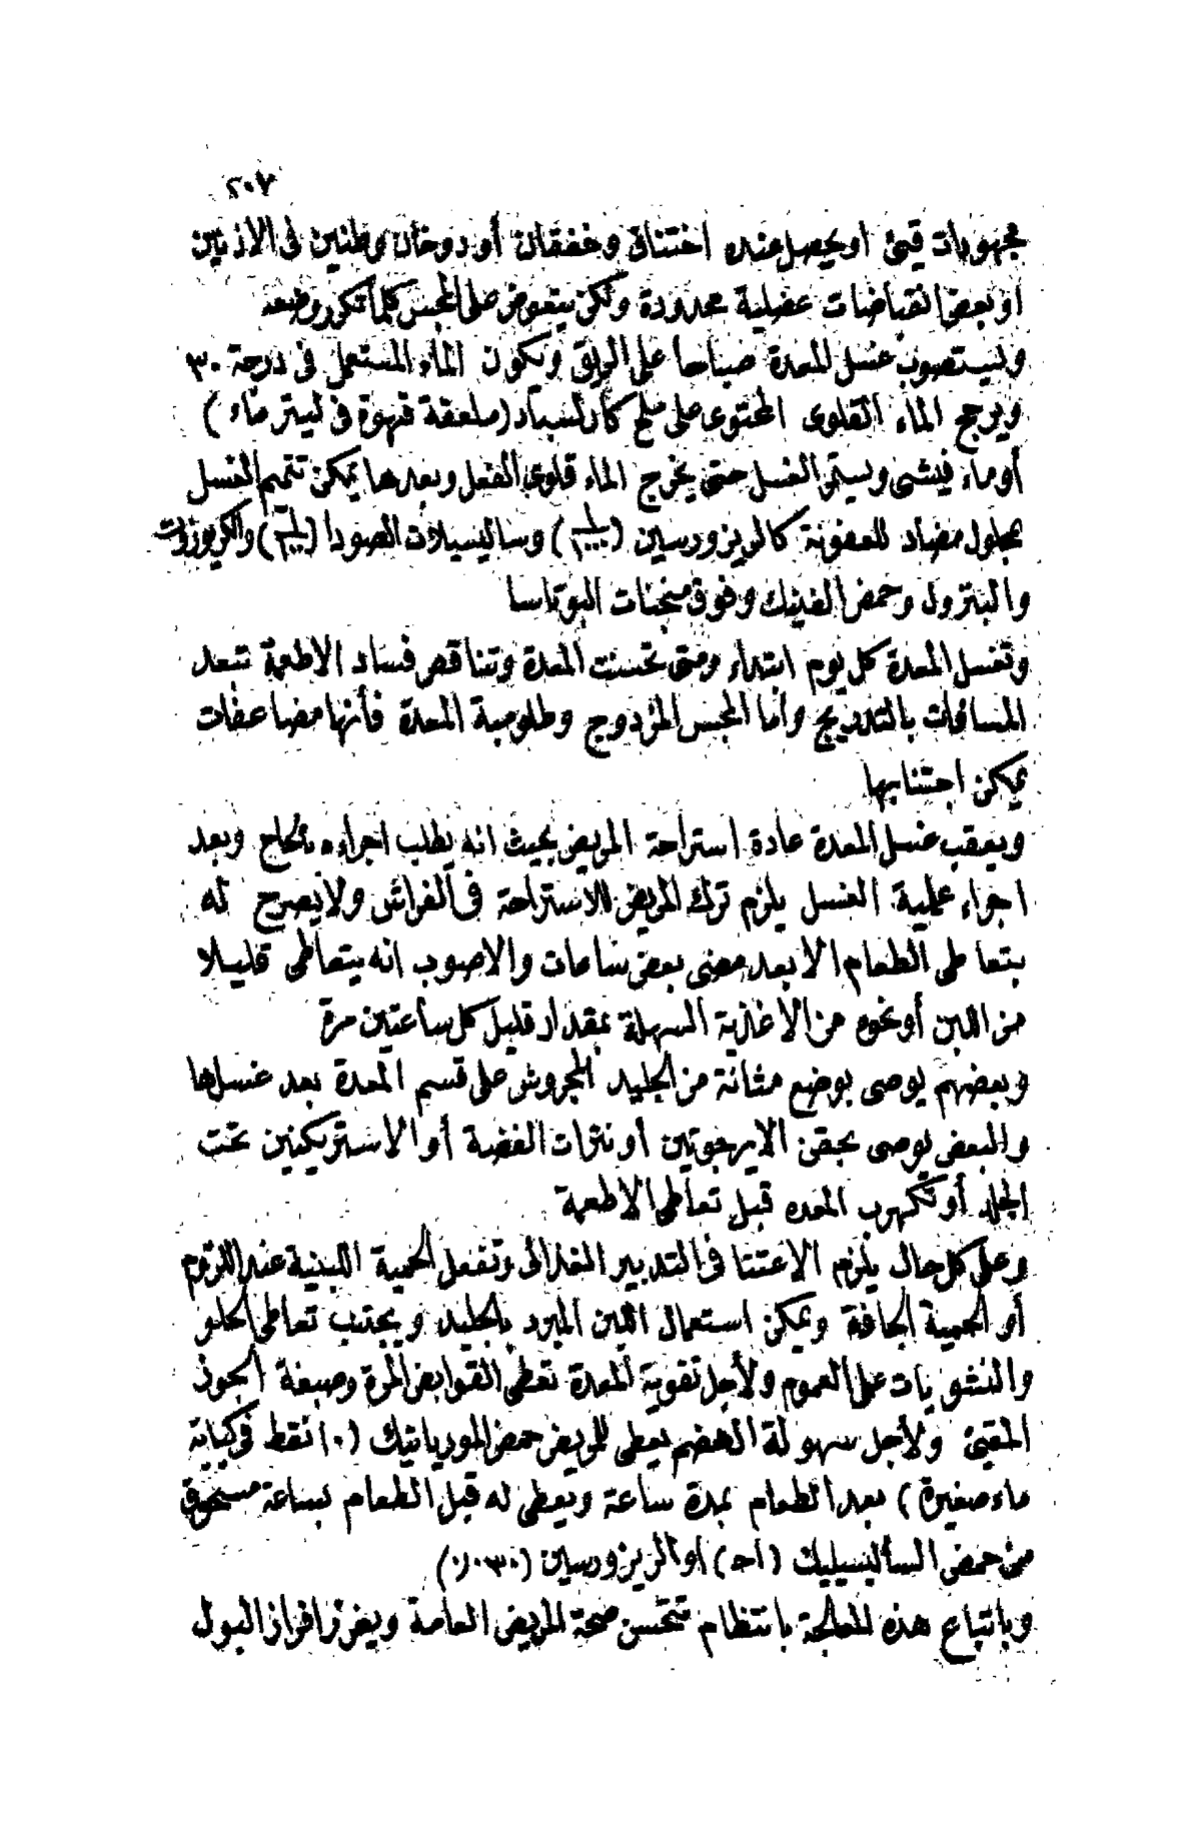 ٢٠٧
مجهودات قيئ او يحصل عنده اختناق وخفقان أو دوخان وطنين فى الاذنين
او بعض انقباضات عضلية محدودة ولكن يتعوض على المجس كلما تكرر وضعه
ويستصوب غسل المعدة صباحا على الريق ويكون الماء المستعمل فى درجة ٣٠
ويرجح الماء القلوى المحتوى على ملح كارلسباد (ملعقة قهوة فى ليتر ماء)
أو ماء فيشى ويستمر الغسل حتى يخرج الماء قلوى الفعل وبعدها يمكن تتميم الغسل
بمحلول مضاد للعفونة كالريزورسين () وساليسيلات الصودا () والكريوزوت
والبترول وحمض الفينيك وفوق منجنات البوتاسا
وتغسل المعدة كل يوم ابتداء ومتى تحسنت المعدة وتناقص فساد الاطعمة تبعد
المسافات بالتدريج وأما المجس المزدوج وطلومبة المعدة فأنها مضاعفات
يمكن اجتنابها
ويعقب غسل المعدة عادة استراحة المريض بحيث انه يطلب اجراءه بالحاح وبعد
اجراء عملية الغسل يلزم ترك المريض للاستراحة فى الفراش ولا يصرح له
بتعاطى الطعام الا بعد مضى بعض ساعات والاصوب انه يتعاطى قليلا
من اللبن أو نحوه من الاغذية السهلة بمقدار قليل كل ساعتين مرة
وبعضهم يوصى بوضع مثانة من الجليد المجروش على قسم المعدة بعد غسلها
والبعض يوصى بحقن الايرجوتين أو نترات الفضة أو الاستريكنين تحت
الجلد أو تكهرب المعده قبل تعاطى الاطعمة
وعلى كل حال يلزم الاعتنا فى التدبير الغذائى وتفعل الحمية اللبنية عند اللزوم
أو الحمية الجافة ويمكن استعمال اللبن المبرد بالجليد ويجتنب تعاطى الحلو
والنشويات على العموم ولأجل تقوية المعدة تعطى القوابض المرة وصبغة الجوز
المقيئ ولأجل سهولة الهضم يعطى للمريض حمض المورياتيك (١٠ نقط فى كباية
ماء صغيرة) بعد الطعام بمدة ساعة ويعطى له قبل الطعام بساعة مسحوق
من حمض الساليسيليك () أو الريزورسين ()
وباتباع هذه المعالجة بانتظام تتحسن صحة المريض العامة ويغزر افراز البول